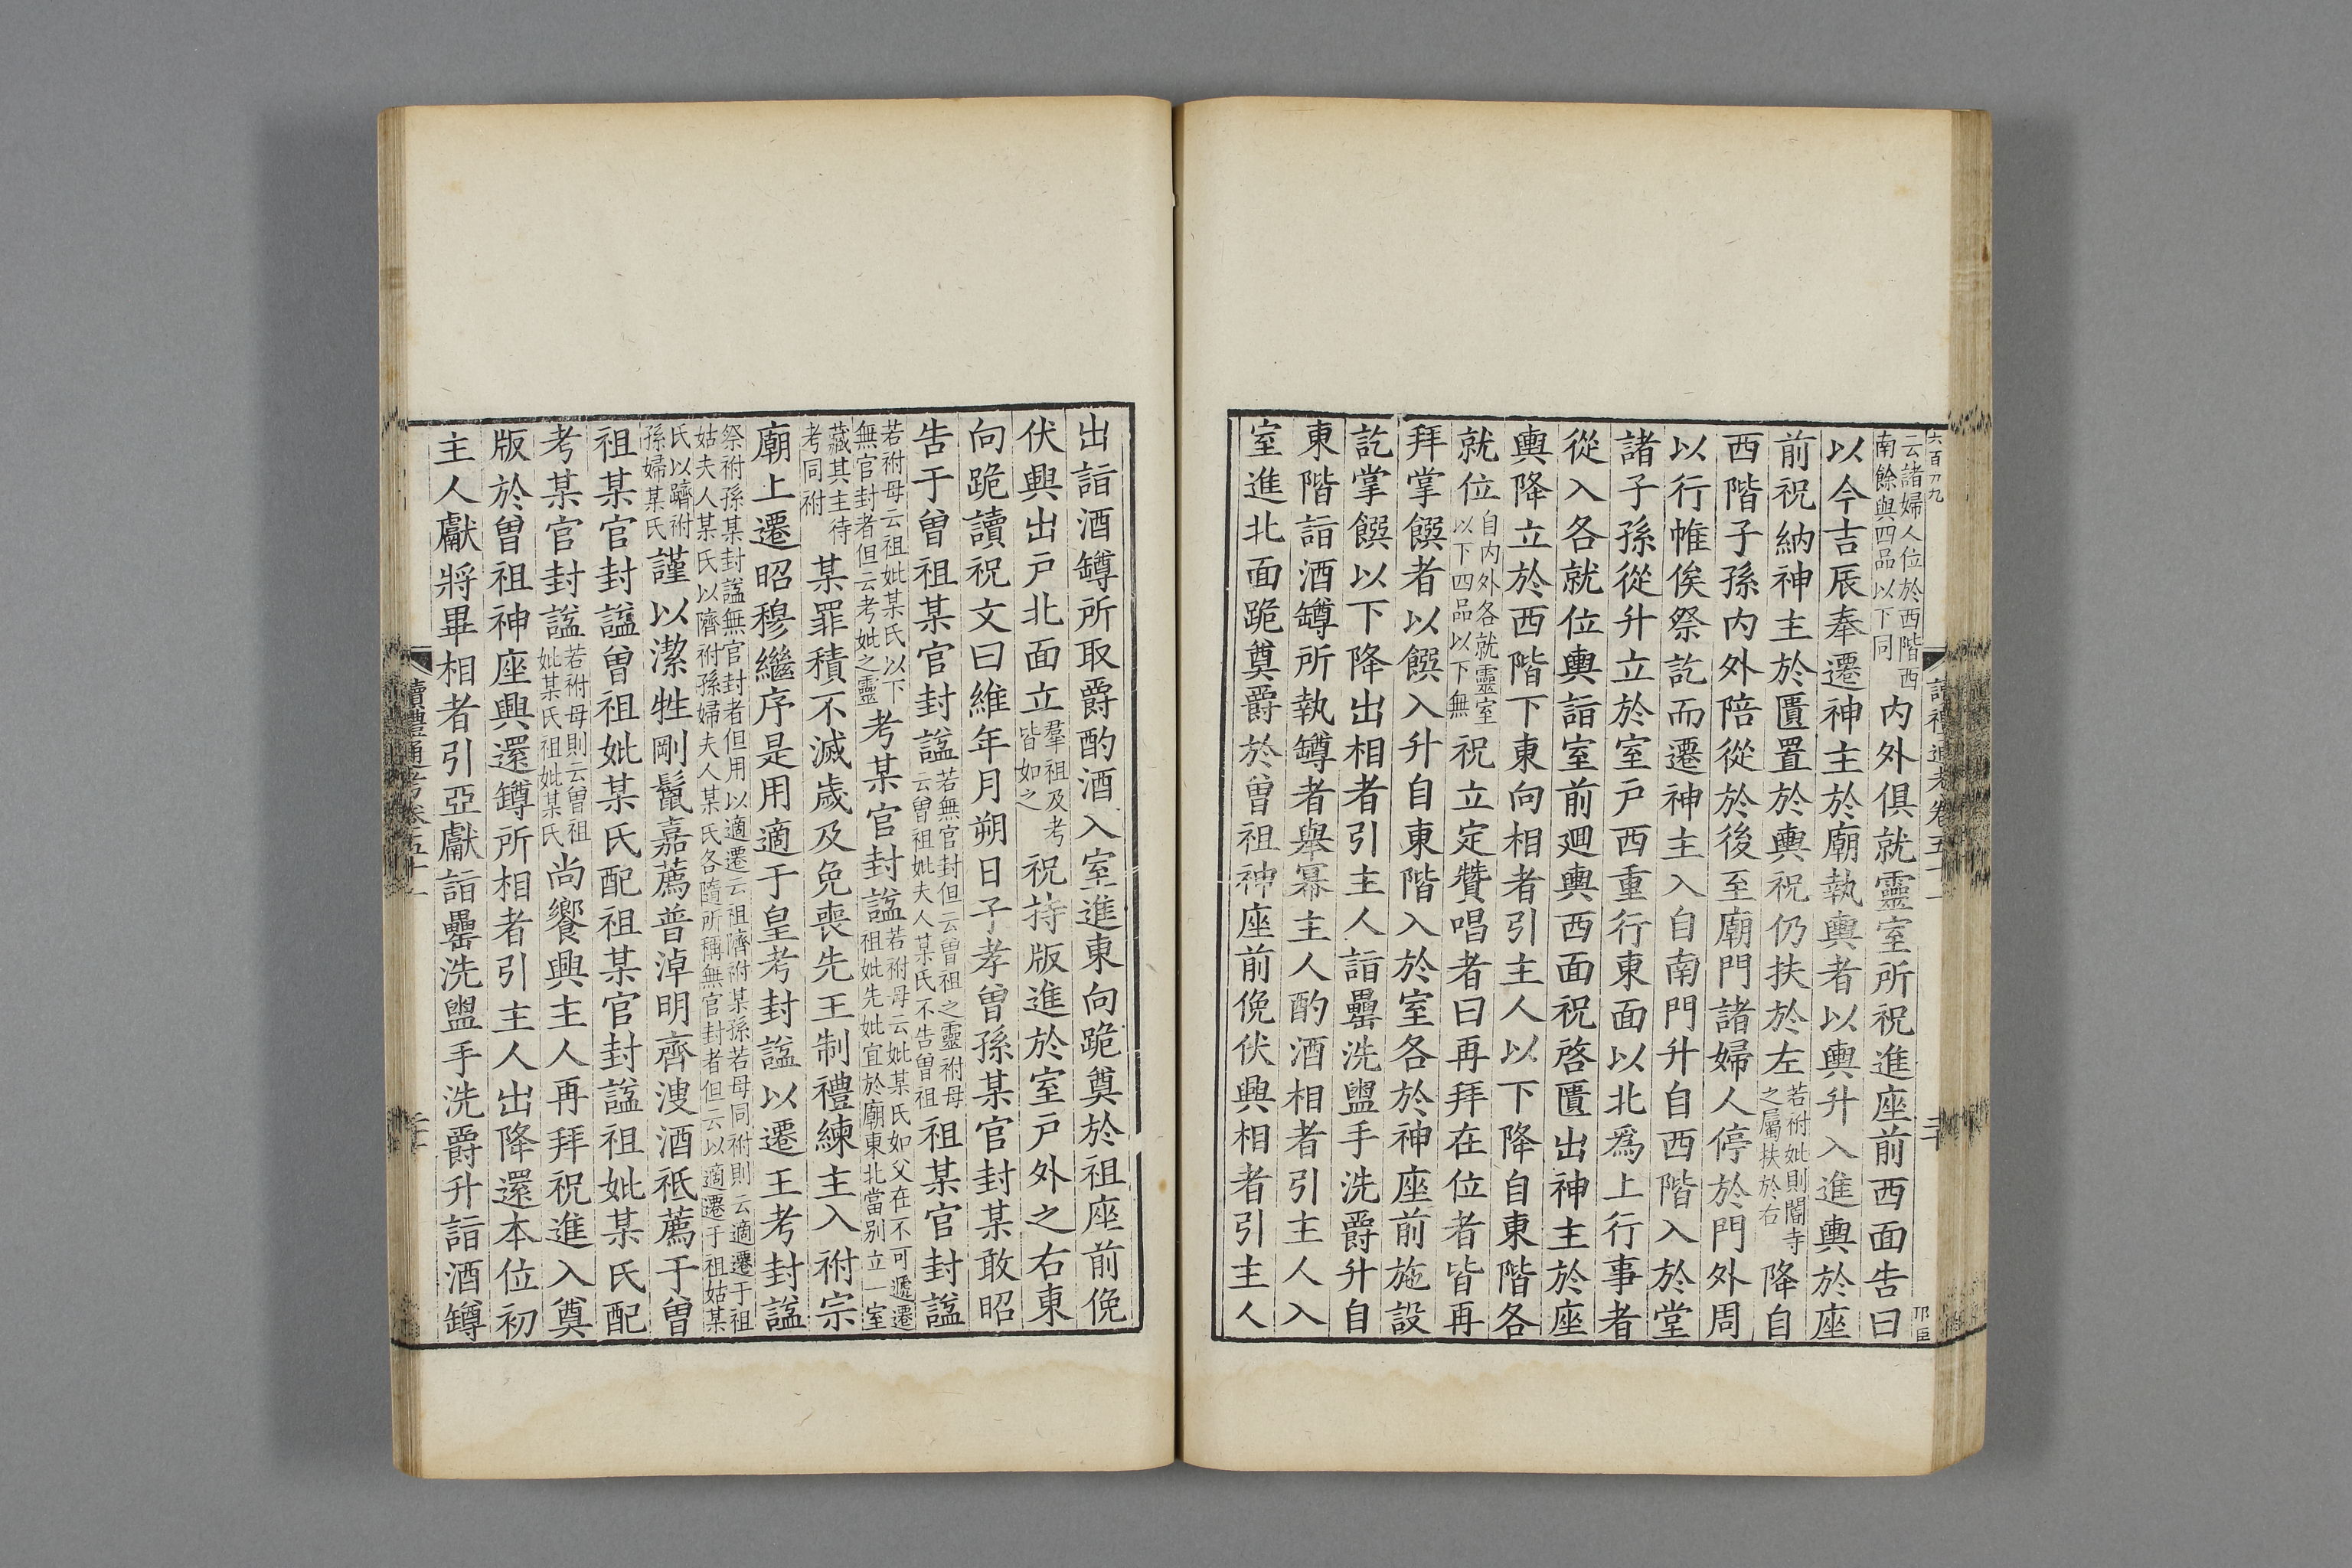 云諸婦人位於西階西南餘與四品以下同内外俱就靈室所祝進座前西面告曰
以今吉辰奉遷神主於廟執輿者以輿升入進輿於座
前祝納神主於匱置於輿祝仍扶於左若祔妣則閽寺之屬扶於右降自
西階子孫内外陪從於後至廟門諸婦人停於門外周
以行帷俟祭訖而遷神主入自南門升自西階入於堂
諸子孫從升立於室戸西重行東面以北爲上行事者
從入各就位輿詣室前廻輿西面祝啓匱出神主於座
輿降立於西階下東向相者引主人以下降自東階各
就位自内外各就靈室以下四品以下無祝立定贊唱者曰再拜在位者皆再
拜掌饌者以饌入升自東階入於室各於神座前施設
訖掌饌以下降出相者引主人詣罍洗盥手洗爵升自
東階詣酒罇所執罇者舉冪主人酌酒相者引主人入
室進北面跪奠爵於曾祖神座前俛伏興相者引主人
出詣酒罇所取爵酌酒入室進東向跪奠於祖座前俛
伏興出戸北面立羣祖及考皆如之祝持版進於室戸外之右東
向跪讀祝文曰維年月朔日子孝曾孫某官封某敢昭
告于曾祖某官封諡若無官封但云曾祖之靈祔母云曾祖妣夫人某氏不告曾祖祖某官封諡
若祔母云祖妣某氏以下無官封者但云考妣之靈考某官封諡若祔母云妣某氏如父在不可遞遷祖妣先妣宜於廟東北當别立一室
藏其主待考同祔某罪積不滅歲及免喪先王制禮練主入祔宗
廟上遷昭穆繼序是用適于皇考封諡以遷王考封諡
祭祔孫某封諡無官封者但用以適遷云祖隮祔某孫若母同祔則云適遷于祖姑夫人某氏以隮祔孫婦夫人某氏各隨所稱無官封者但云以適遷于祖姑某
氏以躋祔孫婦某氏謹以潔牲剛鬣嘉薦普淖明齊溲酒祗薦于曾
祖某官封諡曾祖妣某氏配祖某官封諡祖妣某氏配
考某官封諡若祔母則云曾祖妣某氏祖妣某氏尚饗興主人再拜祝進入奠
版於曾祖神座興還罇所相者引主人出降還本位初
主人獻將畢相者引亞獻詣罍洗盥手洗爵升詣酒罇